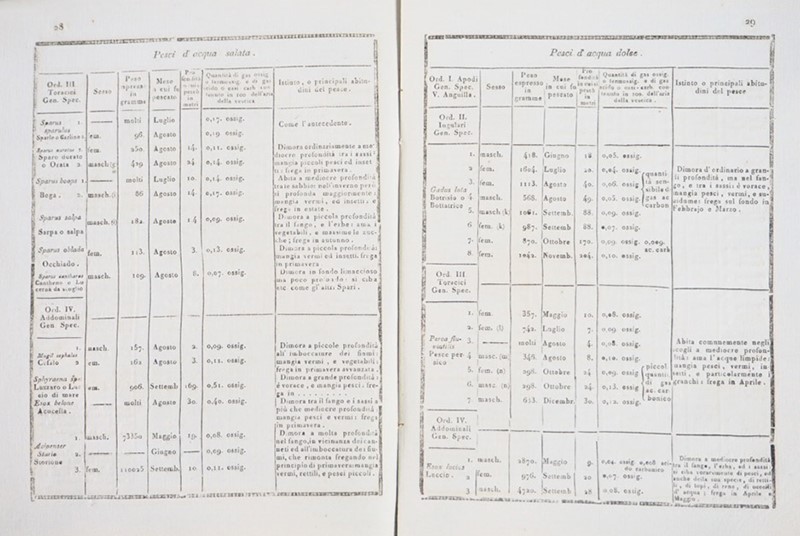 28
Pesci d' acqua salata.
Ord. III
Toracici
Gen. Spec.
Sesso
Peso
espresso
in
gramme
Mese
in cui fu
pescato
metri
Quantità di gas ossig.
della vescica
Istinto, o principali abitudini del pesce.
Sparus 1.
Sparlo o Carlino
fem.
molti Luglio 0,17. ossig.
96. Agosto 0,19 ossig.
Come l' antecedente.
Sparo dorato
o Orata 2.
fem. 250. Agosto 14. 0,11. ossig.
masch. 429 Agosto 24 0,14. ossig.
Dimora ordinariamente a me-
diocre profondità tra i sassi
mangia piccoli pesci ed inset-
ti: frega in primavera.
Sparus boops 1.
molti Luglio 10. 0,14. ossig.
Boga. 2. masch. 86 Agosto 14. 0,17. ossig.
Abita a mediocre profondità
tra le sabbie: nell'inverno però
si profonda maggiormente:
mangia vermi, ed insetti, e
frega in estate.
Sparus salpa
Sarpa o salpa
masch. 182. Agosto 14 0,09. ossig.
Dimora a piccola profondità
tra il fango, e l'erbe: ama i
vegetabili, e massime le zuc-
che; frega in autunno.
Sparus oblada
Occhiado.
fem. 113. Agosto 3. 0,13. ossig.
Dimora a piccola profondità:
mangia vermi ed insetti. frega
in primavera
Sparus cantharus
masch. 109. Agosto 8. 0,07. ossig.
Dimora in fondo limaccioso
ma poco profondo: si ciba
come gl'altri Spari.
Ord. IV.
Addominali
Gen. Spec.
1. masch. 157. Agosto 2. 0,09. ossig.
Mugil cephalus
Cefalo 2 em. 162 Agosto 3. 0,12. ossig.
Dimora a piccole profondità
all' imboccature dei fiumi:
mangia vermi, e vegetabili:
frega in primavera avvanzata.
Sphyraena
Luzzaro o Luc-
cio di mare
em. 906. Settemb. 169 0,51. ossig.
Dimora a grande profondità:
è vorace, e mangia pesci: fre-
ga in
Esox belone
Acucella.
molti Agosto 30. 0,40. ossig.
Dimora tra il fango e i sassi a
più che mediocre profondità:
mangia pesci e vermi: frega
in primavera.
1. masch. 73350 Maggio 19. 0,08. ossig.
Acipenser
Sturio 2. Giugno 0,09. ossig.
Storione
3. fem. Settemb. 10 0,11. ossig.
Dimora a molta profondità
nel fango, in vicinanza dei can-
neti ed all'imboccatura dei fiu-
mi, che rimonta fregando nel
principio di primavera: mangia
vermi, rettili, e pesci piccoli.
29
Pesci d' acqua dolce.
Ord. I. Apodi
Gen. Spec.
V. Anguilla.
Sesso
Peso
espresso
in
gramme
Mese
in cui fu
pescato
metri
Quantità di gas ossig.
della vescica.
Istinto o principali abitudini del pesce
Ord. II.
Iugulari
Gen. Spec.
1. masch. 418. Giugno 18 0,05. ossig.
2 fem. 1604. Luglio 20. 0,04. ossig.
3. fem. 1123. Agosto 40. 0,06. ossig.
Gadus lota
Botrisia o 4 masch 568. Agosto 49. 0,05. ossig.
Bottatrice
5. masch 1061. Settemb. 88. 0,09. ossig.
6 fem. 987. Settemb 88. 0,07. ossig.
7. fem. 870. Ottobre 170. 0,09. ossig. 0,009.
ac. carb.
8. fem. 1042. Novemb. 104. 0,10. ossig.
quanti-
tà sen-
sibile di
gas ac
carbon
Dimora d' ordinario a gran-
di profondità, ma nel fan-
go, e tra i sassi: è vorace,
mangia pesci, vermi, e su-
diciume: frega sul fondo in
Febbrajo e Marzo.
Ord. III
Toracici
Gen. Spec.
1. fem. 357. Maggio 10. 0,08. ossig.
2. fem. 742. Luglio 7. 0,09 ossig.
Perca flu-
viatilis 3. molti Agosto 4. 0,08. ossig.
Pesce per-
sico 4 masc. 348. Agosto 8. 0,10. ossig.
5. fem. 298. Ottobre 24 0,09. ossig.
6. masc. 298. Ottobre 24. 0,13. ossig
7. masch. 623. Dicembr. 30. 0,12. ossig.
piccol
quanti.
di gas
ac. car-
bonico
Abita comunemente negli
scogli a mediocre profon-
dità: ama l' acque limpide:
mangia pesci, vermi, in-
setti, e particolarmente i
granchi: frega in Aprile.
Ord. IV.
Addominali
Gen. Spec.
1. masch. 2870. Maggio 9. 0,02. ossig 0,008 aci-
do carbonico
Esox lucius
Luccio. 2 fem. 976. Settemb 20 0,07 ossig.
3 masch. 4720. Settemb 28 0,08. ossig.
Dimora a mediocre profondità
tra il fango, l'erba, ed i sassi:
si ciba voracemente di pesci, ed
anche della sua specie, di retti-
li, di topi, di rane, di uccelli
d' acqua; frega in Aprile e
Maggio.